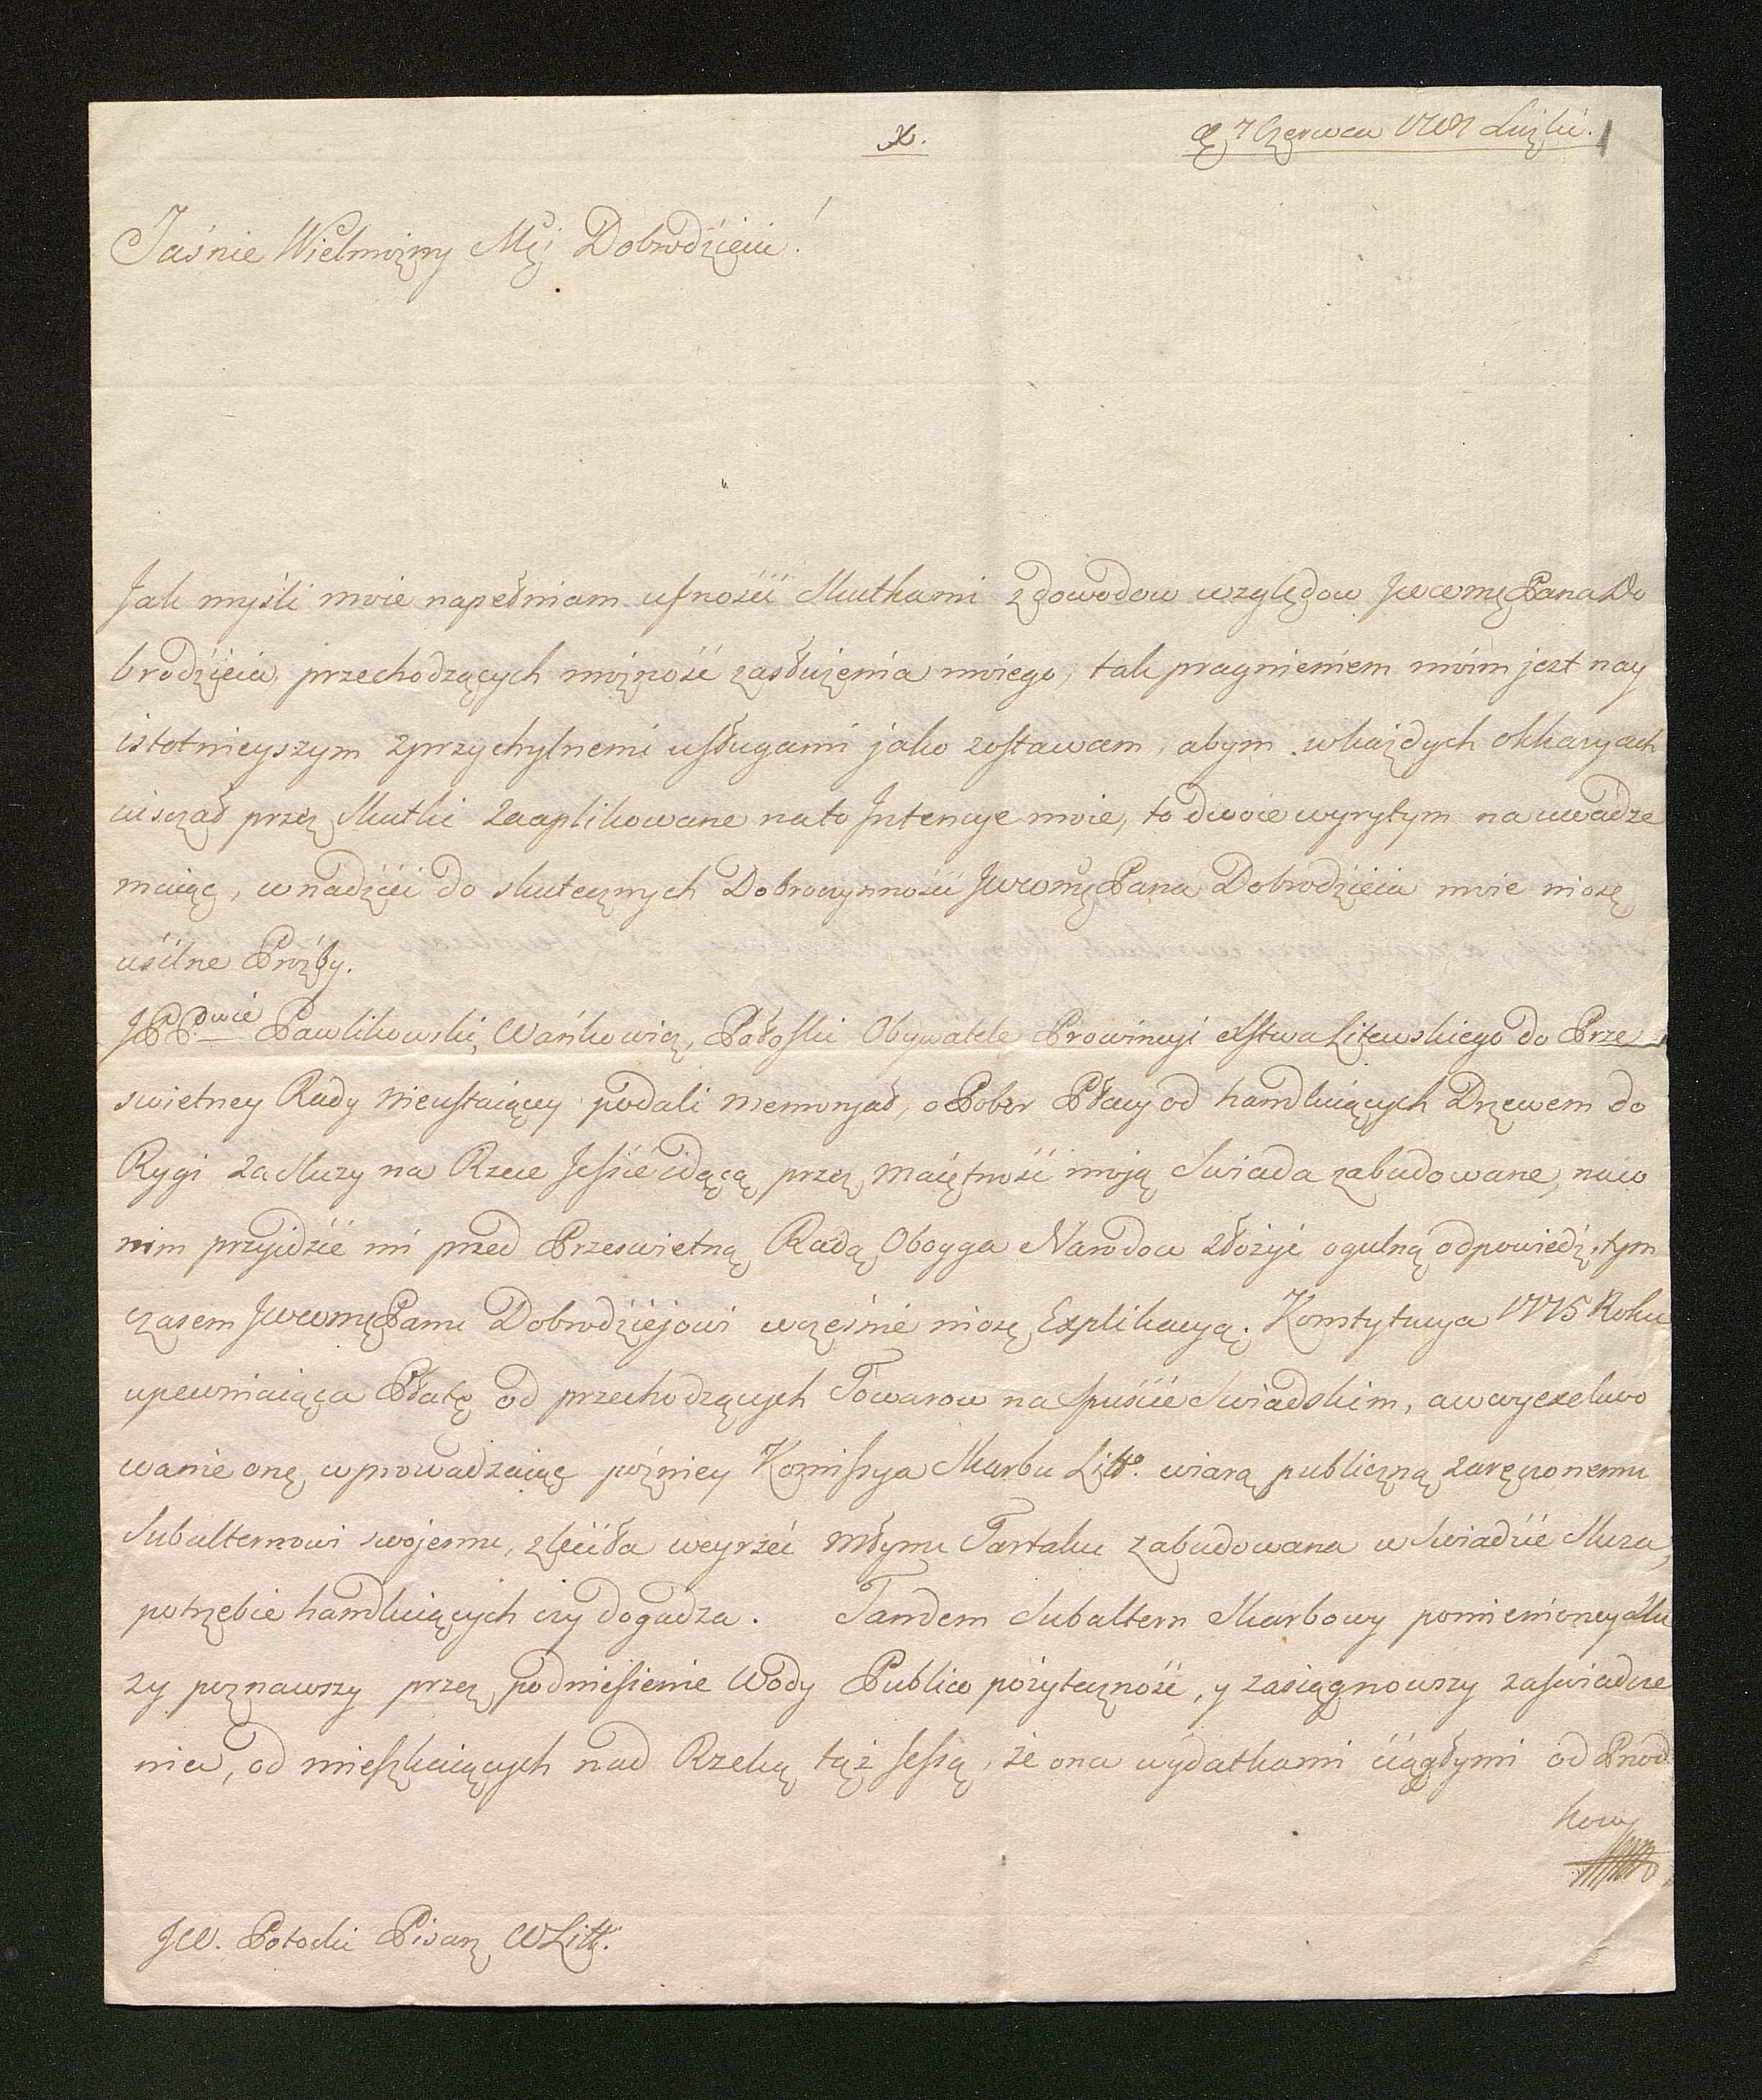 X.
D. 7 Czerwca 1781 Łużki. 1
Jaśnie Wielmożny Mci Dobrodzieiu!
Jak myśli moie napełniam ufności skutkami z dowodow względow JWWMĘ Pana Do
brodzieia, przechodzących możność zasłużenia moiego, tak pragnieniem moim jest nay
istotnieyszym z przychylnemi usługami jako zostawam, abym w każdych okkazyach
iścił przez skutki zaaplikowane na to Intencye moie, to dwoie wyrytym na uwadze
maiąc, w nadziei do skutecznych Dobroczynności JWWMĘ Pana Dobrodzieia moie niosę
usilne Proźby.
JPP.owie Pawlikowski, Wańkowicz, Połoski Obywatele Prowincyi Xstwa Litewskiego do Prze
swietney Rady Nieustaiącey podali memoryał, o Pobor Płacy od handluiących Drzewem do
Rygi za sluzy na Rzece Jessie idącą przez maiętność moją Swiada zabudowane, na co
nim przyidzie mi przed Przeswietną Radą Oboyga Narodow złożyć ogulną odpowiedź, tym
czasem JWWMĘ Panu Dobrodziejowi wcześnie niosę Explikacyą. Konstytucya 1775 Roku
upewniaiąca Płatę od przechodzących Towarow na spuście Swiadskim, a w wyexekwo
wanie onę wprowadzaiąc pożniey Kommissya Skarbu Litt.o wiarą publiczną zaręczonemu
Subalternowi swojemu, zleciła weyrzeć młynu Tartaku zabudowana w Swiadzie sluza,
potrzebie handluiących czy dogadza. Tandem Subaltern Skarbowy pomienioney slu
zy poznawszy przez podniesienie Wody Publico pożyteczność, y zasiągnowszy zaswiadcze
nia, od mieszkaiących nad Rzeką tąż Jessą, że ona wydatkami ciągłymi od Przod
kow
JW. Potocki Pisarz WLitt.